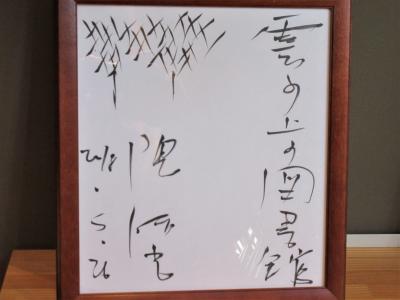 雲の上の図書館
隈研吾
2018.5.26